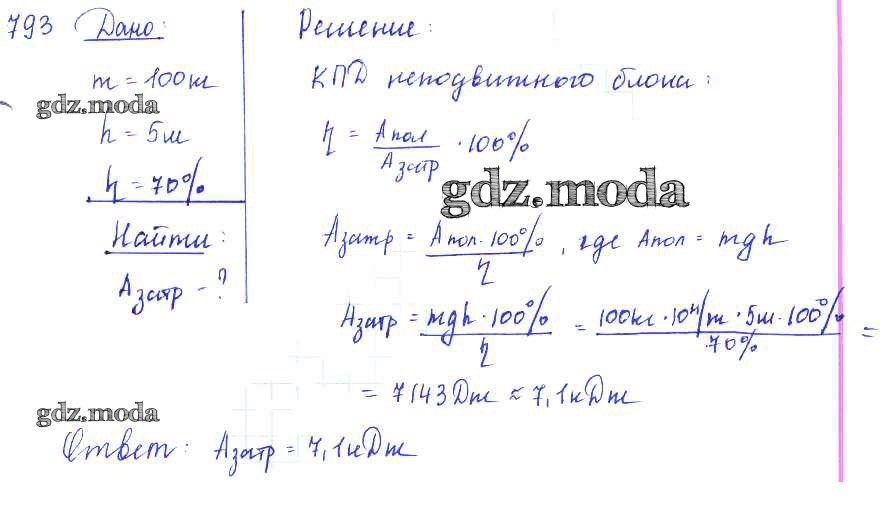 793 Дано:
m = 100кг
gdz.moda
h = 5м
η = 70%
Найти:
Aзатр - ?
Решение:
КПД неподвижного блока:
η = Aпол / Aзатр · 100%
gdz.moda
Aзатр = Aпол · 100% / η, где Aпол = mgh
Aзатр = mgh · 100% / η = 100кг · 10 Н/кг · 5м · 100% / 70% =
= 7143Дж ≈ 7,1кДж
gdz.moda
Ответ: Aзатр = 7,1кДж